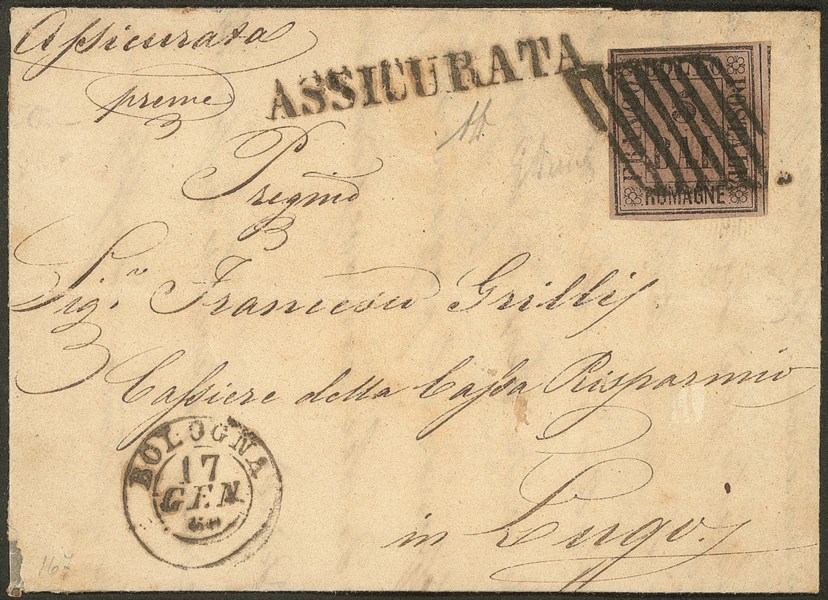 Assicurata
preme
ASSICURATA
FRANCO BOLLO POSTALE
BAI
ROMAGNE
Pregmo
Sigr. Francesco Grilli
Cassiere della Cassa Risparmio
in Lugo.
BOLOGNA
17
GEN